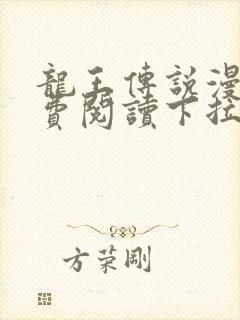 龍王傳説漫
費閱讀下拉
方荣剛